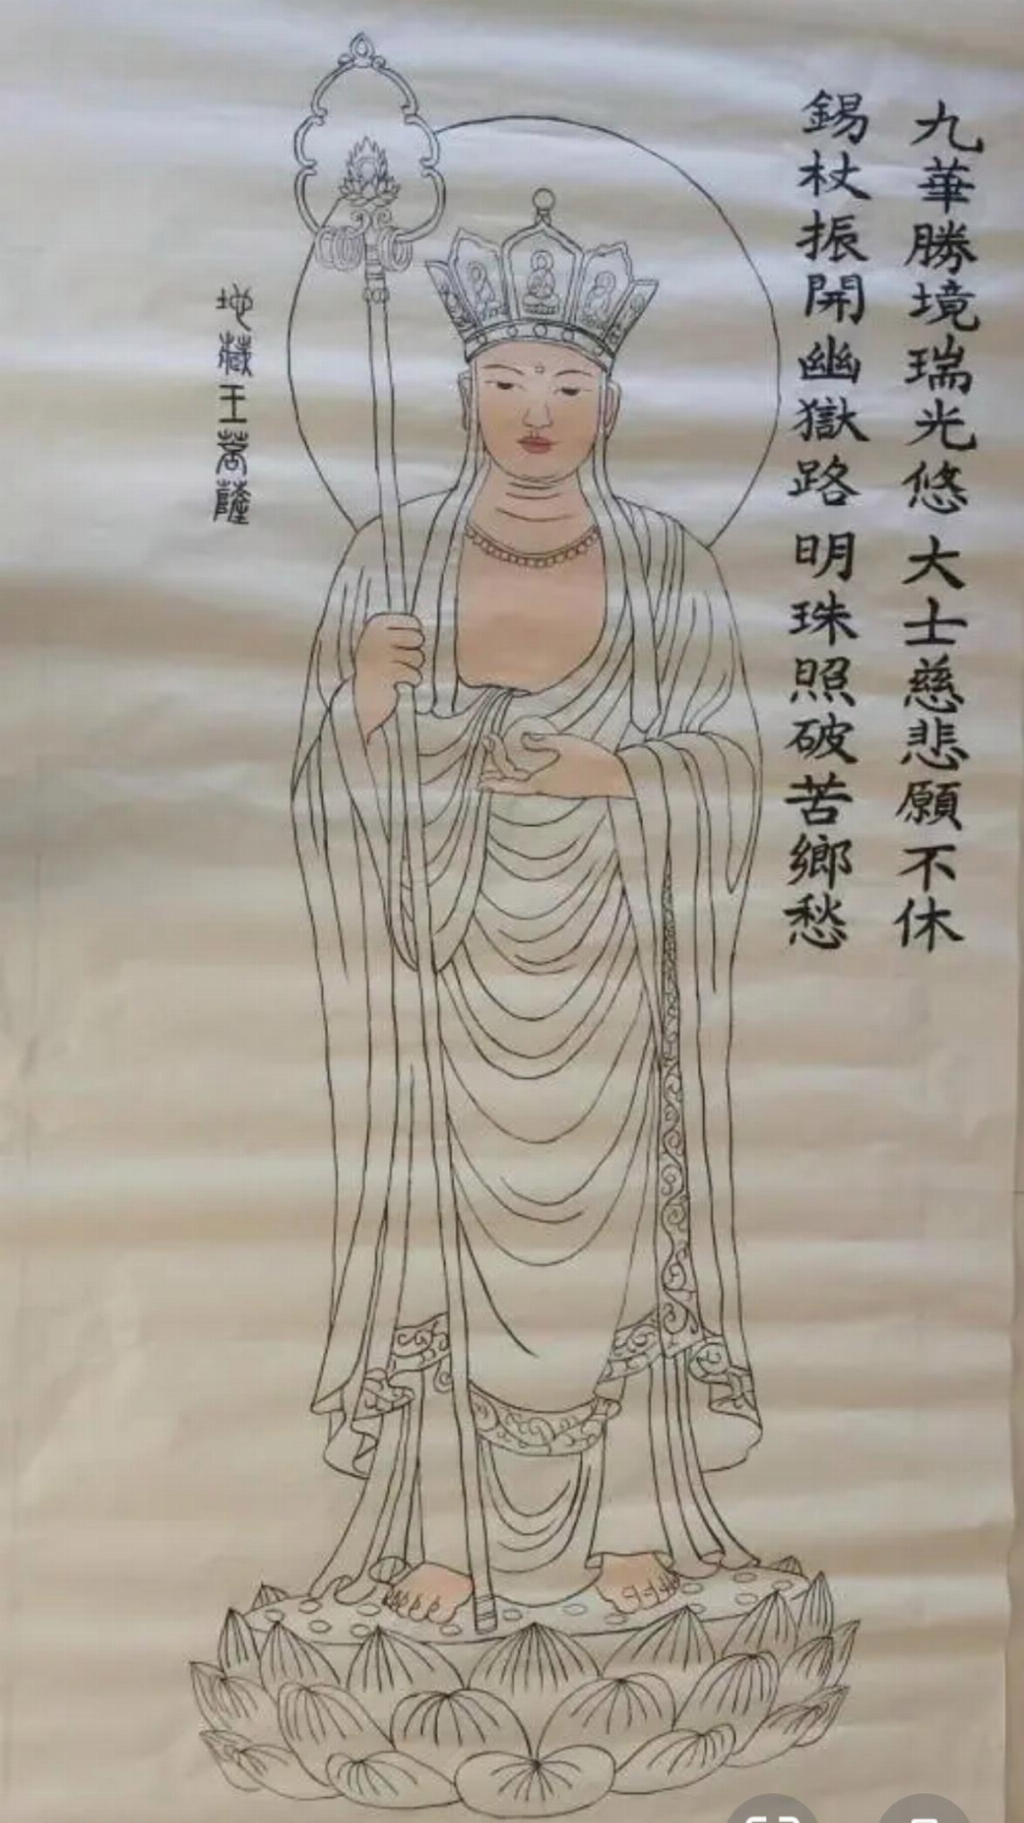 九華勝境瑞光悠 大士慈悲願不休
錫杖振開幽獄路 明珠照破苦鄉愁
地藏王菩薩